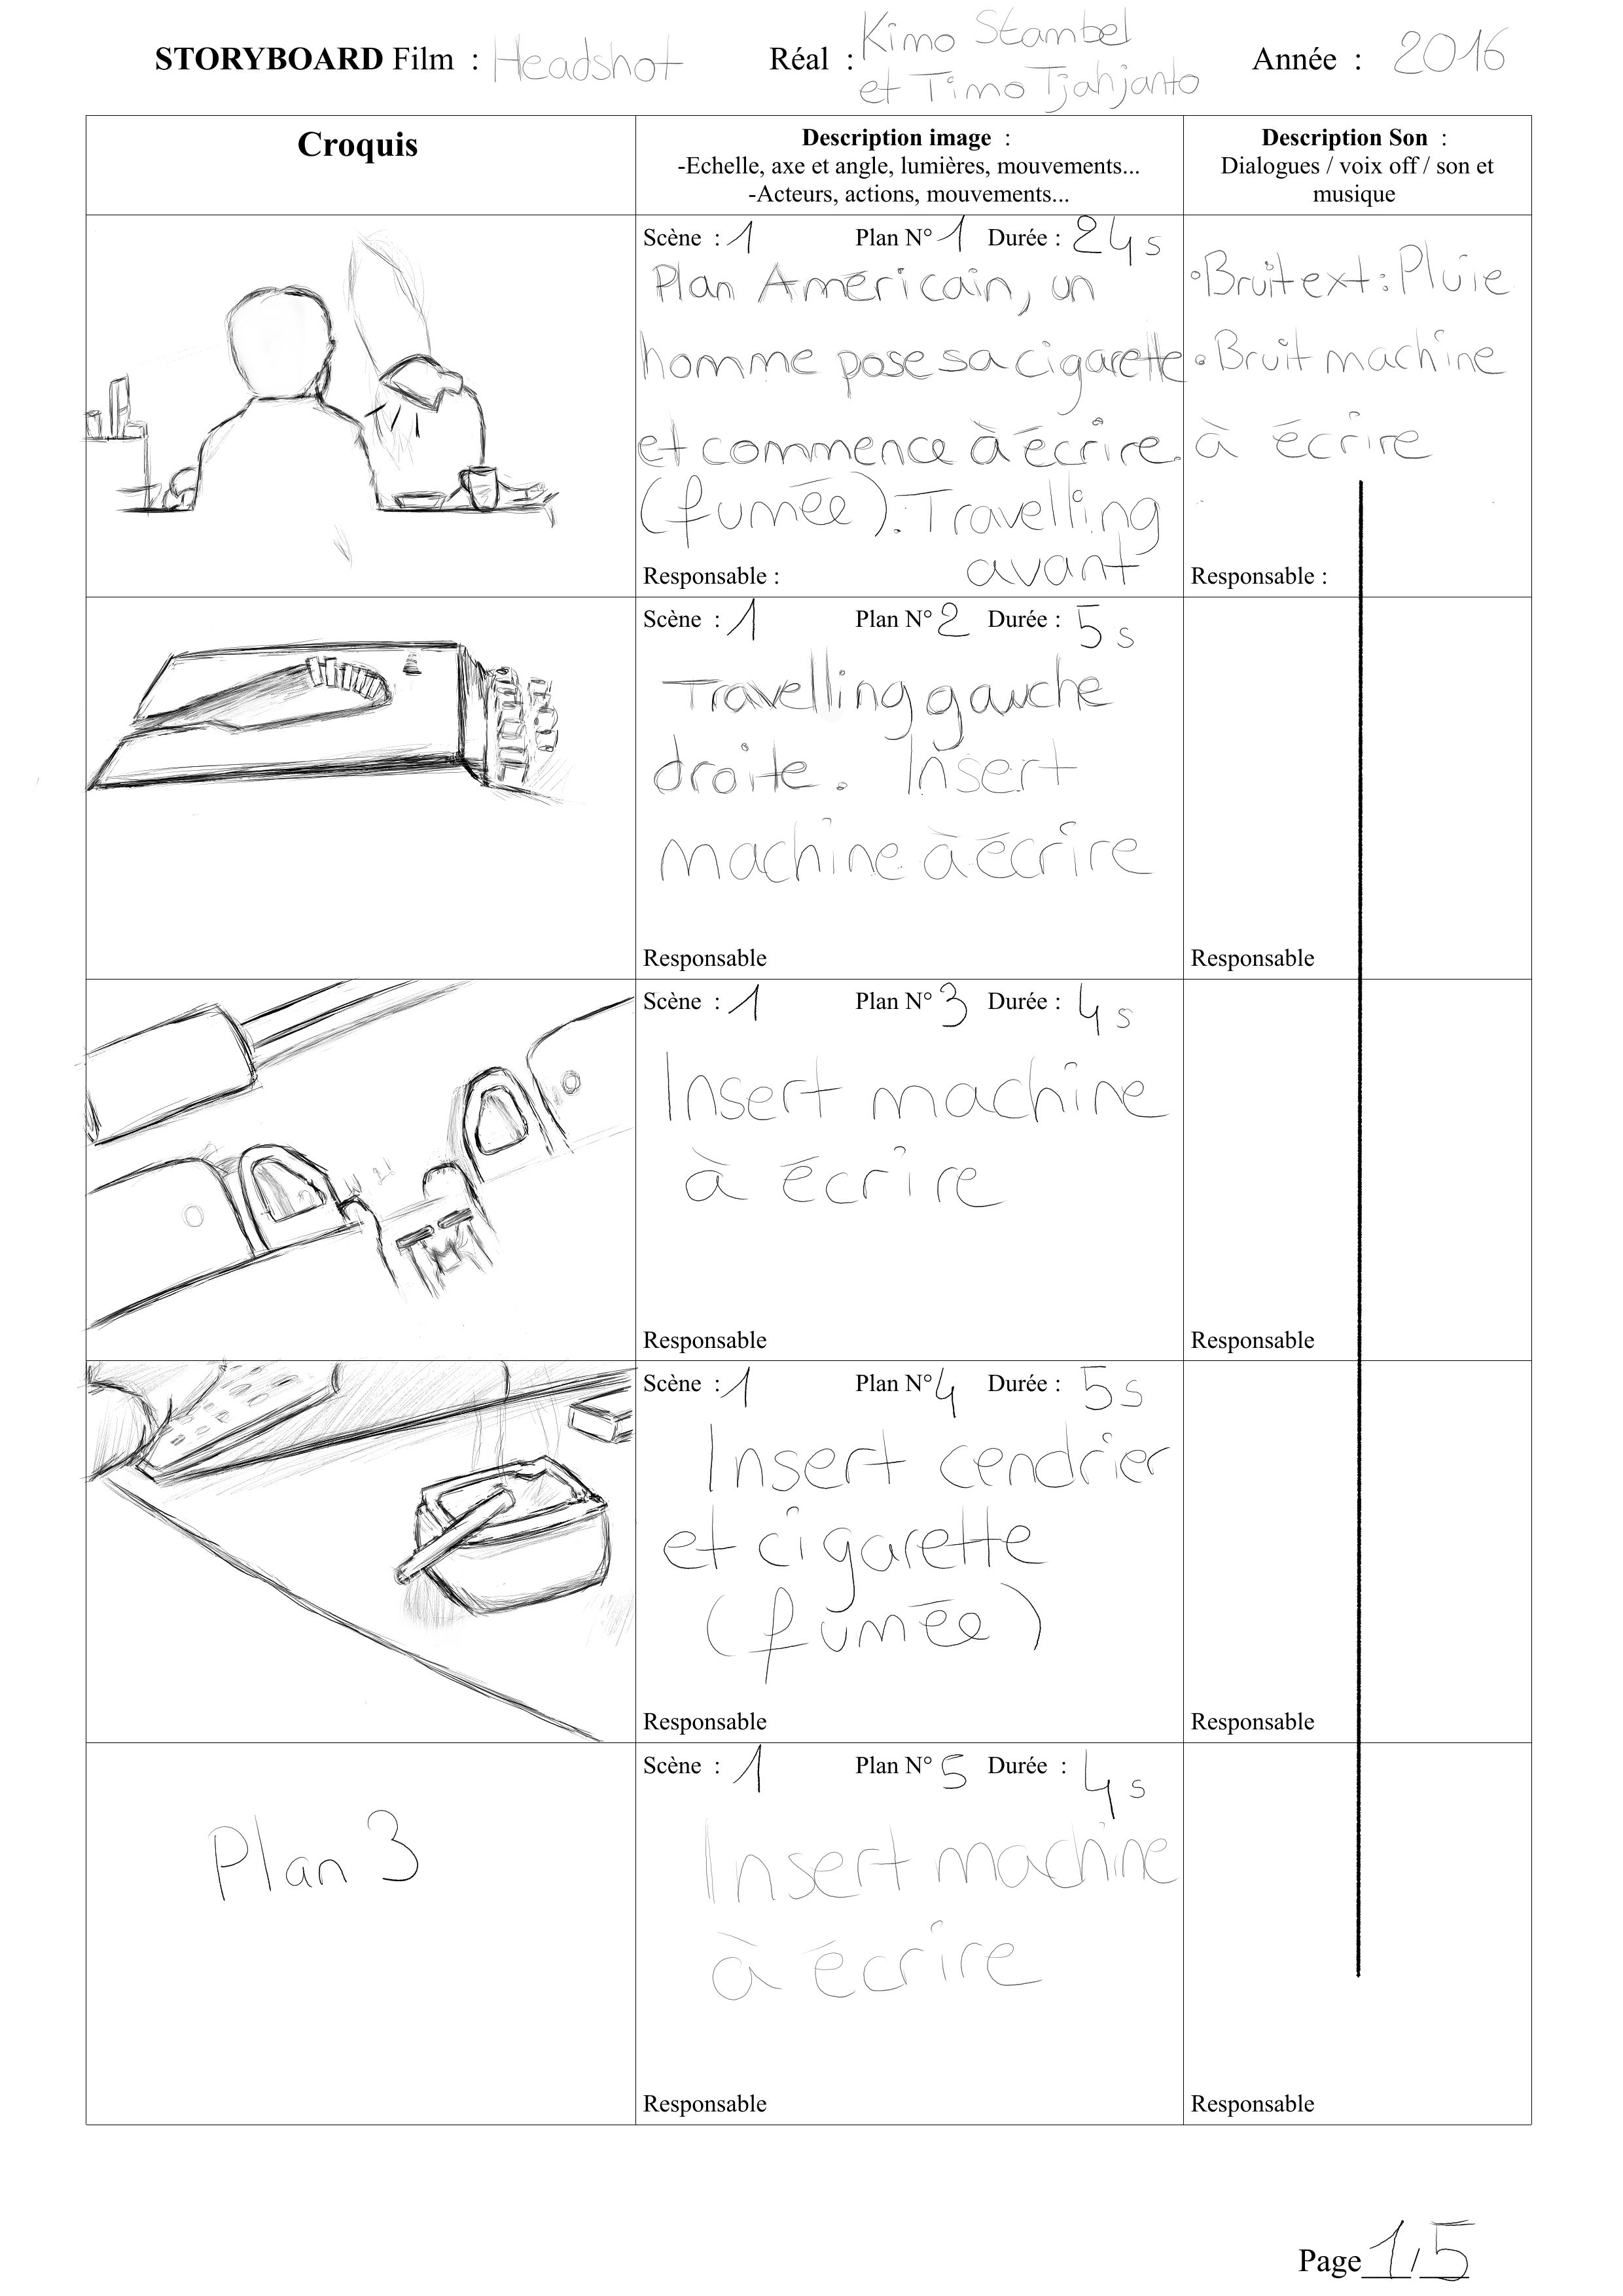 STORYBOARD Film : Headshot Réal : Kimo Stambel et Timo Tjahjanto Année : 2016
Croquis
Description image :
-Echelle, axe et angle, lumières, mouvements...
-Acteurs, actions, mouvements...
Description Son :
Dialogues / voix off / son et
musique
Scène : 1 Plan N° 1 Durée : 24s
Plan Américain, un
homme pose sa cigarette
et commence à écrire.
(fumée). Travelling
avant
Responsable :
•Bruit ext : Pluie
•Bruit machine
à écrire
Responsable :
Scène : 1 Plan N° 2 Durée : 5s
Travelling gauche
droite. Insert
machine à écrire
Responsable
Responsable
Scène : 1 Plan N° 3 Durée : 4s
Insert machine
à écrire
Responsable
Responsable
Scène : 1 Plan N° 4 Durée : 5s
Insert cendrier
et cigarette
(fumée)
Responsable
Responsable
Plan 3
Scène : 1 Plan N° 5 Durée : 4s
Insert machine
à écrire
Responsable
Responsable
Page 1/5